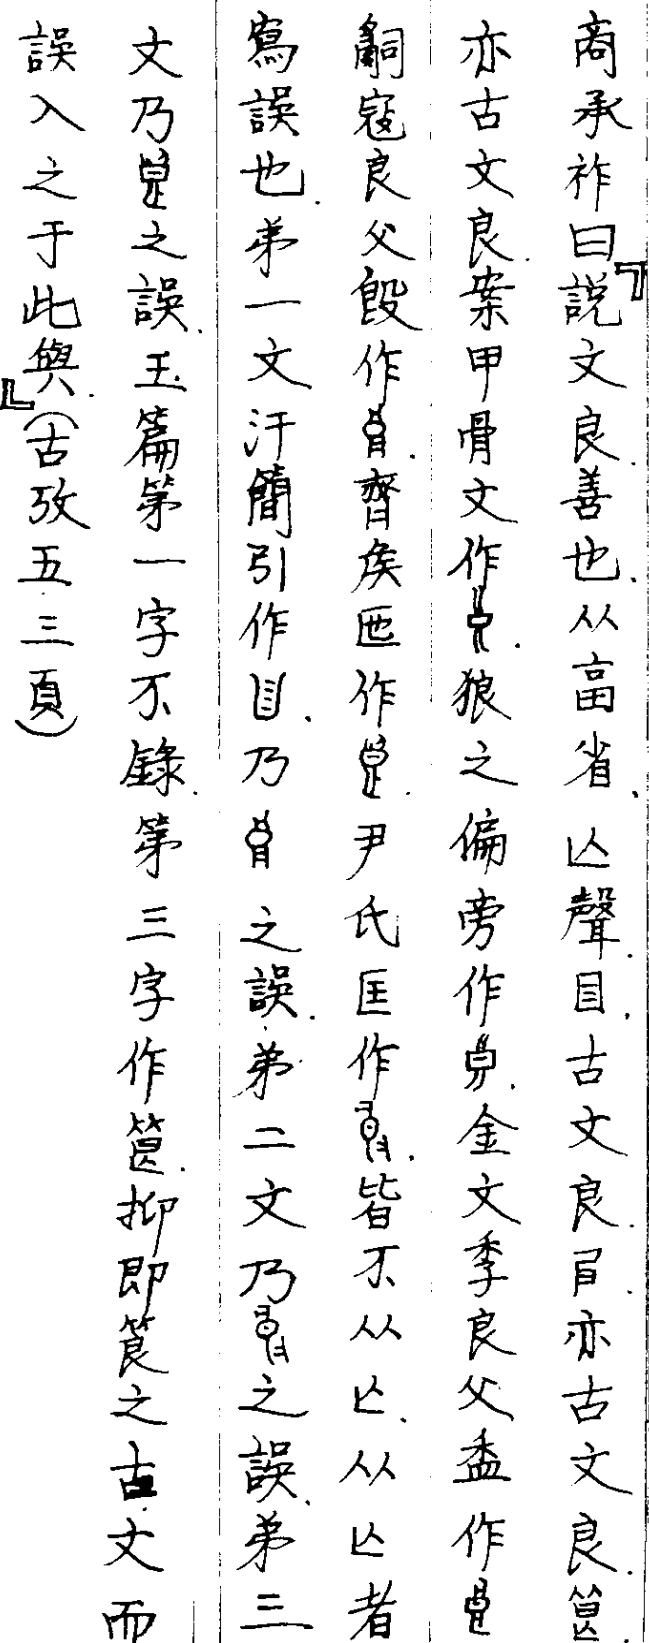 商承祚曰『說文良.善也.从畗省.亾聲.目.古文良.㠯.亦古文良.𥫫
亦古文良.案甲骨文作.狼之偏旁作.金文季良父盉作
嗣寇良父𣪘作.齊矦匜作.尹氏匡作.皆不从亾.从亾者
寫誤也.弟一文汗簡引作目.乃之誤.弟二文乃之誤.弟三
文乃之誤.玉篇第一字不錄.第三字作.抑即筤之古文而
誤入之于此與.』(古攷五三頁)